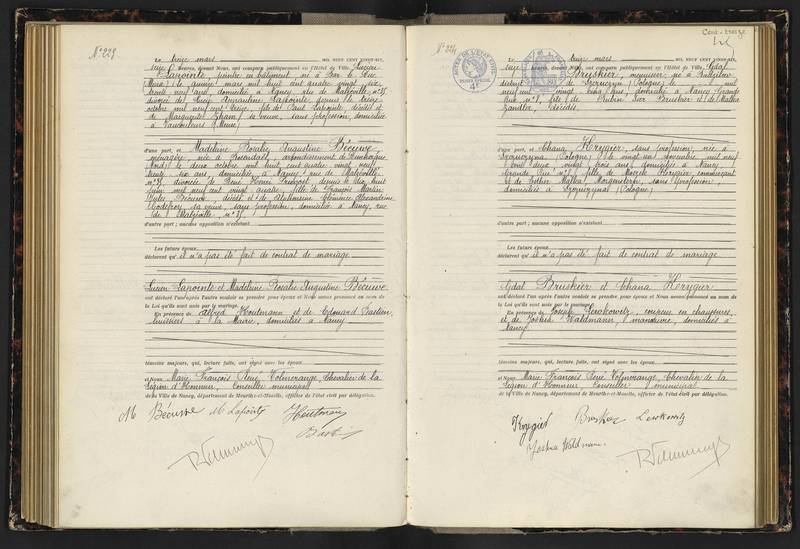 N° 223
Le treize mars MIL NEUF CENT VINGT-SIX,
seize heures, devant Nous, ont comparu publiquement en l'Hôtel de Ville Lucien
Lapointe, peintre en bâtiment, né à Bar le Duc
(Meuse) le quinze mars mil huit cent quatre vingt six
trente neuf ans, domicilié à Nancy, rue de Malzéville, n° 35,
divorcé de Lucy Amandine Lapointe, depuis le treize
octobre mil neuf cent treize, fils de Paul Lapointe, décédé et
de Marguerite Tham, sa veuve, sans profession, domiciliée
à Vaucouleurs (Meuse),
d'une part, et Madeleine Rosalie Augustine Bécuwe,
ménagère, née à Rosendael, arrondissement de Dunkerque
(Nord) le deux octobre mil huit cent quatre vingt neuf
trente six ans, domiciliée à Nancy, rue de Malzéville
n° 35, divorcée de René Henri depuis le dix huit
juin mil neuf cent vingt quatre, fille de François Martin
Jules Bécuwe, décédé et de Clémence Alexandrine
Godefroy, sa veuve, sans profession, domiciliée à Nancy, rue
de Malzéville, n° 35,
d'autre part; aucune opposition n'existant.
Les futurs époux
déclarent qu'il n'a pas été fait de contrat de mariage
Lucien Lapointe et Madeleine Rosalie Augustine Bécuwe
ont déclaré l'un après l'autre vouloir se prendre pour époux et Nous avons prononcé au nom de
la Loi qu'ils sont unis par le mariage.
En présence de Alfred Houtmann et de Edouard Bastien,
huissiers à la Mairie, domiciliés à Nancy
témoins majeurs, qui, lecture faite, ont signé avec les époux
et Nous Marie François René Volmerange, Chevalier de la
Légion d'Honneur, Conseiller municipal
de la Ville de Nancy, département de Meurthe-et-Moselle, officier de l'état civil par délégation.
M Bécuwe M Lapointe Houtmann
Bastien
N° 224
Cent-treize
Le treize mars MIL NEUF CENT VINGT-SIX,
seize heures, devant Nous, ont comparu publiquement en l'Hôtel de Ville Gdal
Bruskier, menuisier, né à
district de (Pologne) le mil
neuf cent vingt cinq ans, domicilié à Nancy Grande
Rue n° 1, fils de Rubin Bruskier et de Malka
décédés,
d'une part, et Chana Krzygier, sans profession, née à
(Pologne) le vingt un novembre mil neuf
cent deux, vingt trois ans, domiciliée à Nancy
Grande Rue n° 1, fille de Krzygier, commerçant
et de Esther Malka Morgenstern, sans profession,
domiciliés à (Pologne),
d'autre part; aucune opposition n'existant.
Les futurs époux
déclarent qu'il n'a pas été fait de contrat de mariage
Gdal Bruskier et Chana Krzygier
ont déclaré l'un après l'autre vouloir se prendre pour époux et Nous avons prononcé au nom de
la Loi qu'ils sont unis par le mariage.
En présence de Joseph Lewkowitz, coupeur en chaussures,
et de Joshua Waldmann, manœuvre, domiciliés à
Nancy
témoins majeurs, qui, lecture faite, ont signé avec les époux
et Nous Marie François René Volmerange, Chevalier de la
Légion d'Honneur, Conseiller municipal
de la Ville de Nancy, département de Meurthe-et-Moselle, officier de l'état civil par délégation.
Krzygier Bruskier Lewkowitz
Joshua Waldmann